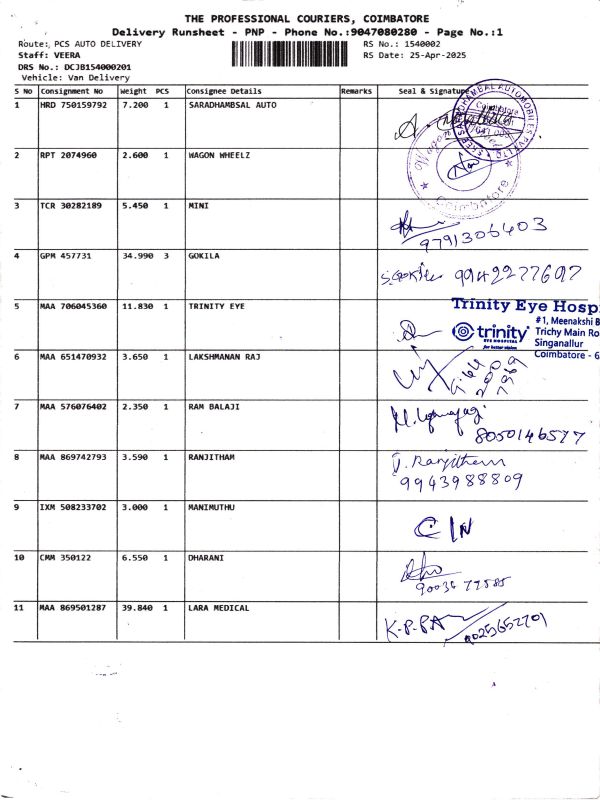 THE PROFESSIONAL COURIERS, COIMBATORE
Delivery Runsheet - PNP - Phone No.:9047080280 - Page No.:1
Route: PCS AUTO DELIVERY RS No.: 1540002
Staff: VEERA RS Date: 25-Apr-2025
DRS No.: DCJB154000201
Vehicle: Van Delivery
S No Consignment No Weight PCS Consignee Details Remarks Seal & Signature
1 HRD 750159792 7.200 1 SARADHAMBSAL AUTO
Coimbatore
2 RPT 2074960 2.600 1 WAGON WHEELZ
Wagon
Coimbatore
3 TCR 30282189 5.450 1 MINI
9791306403
4 GPM 457731 34.990 3 GOKILA
9942277697
5 MAA 706045360 11.830 1 TRINITY EYE
Trinity Eye Hosp
#1, Meenakshi B
trinity Trichy Main Ro
EYE HOSPITAL Singanallur
for better vision Coimbatore - 6
6 MAA 651470932 3.650 1 LAKSHMANAN RAJ
7 MAA 576076402 2.350 1 RAM BALAJI
8050146577
8 MAA 869742793 3.590 1 RANJITHAM
J. Ranjitham
9943988809
9 IXM 508233702 3.000 1 MANIMUTHU
10 CMM 350122 6.550 1 DHARANI
11 MAA 869501287 39.840 1 LARA MEDICAL
K-P-PA 9025652701